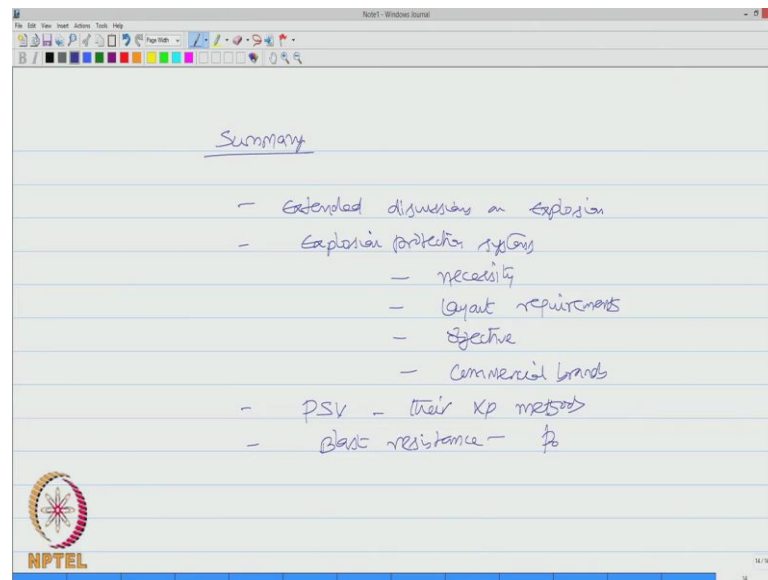 Note1 - Windows Journal
File Edit View Insert Actions Tools Help
Page Width
B I
Summary
- Extended discussions on Explosion
- Explosion protection systems
- necessity
- layout requirements
- objective
- Commercial brands
- PSV - their Xp methods
- Blast resistance - po
NPTEL
14/14
14